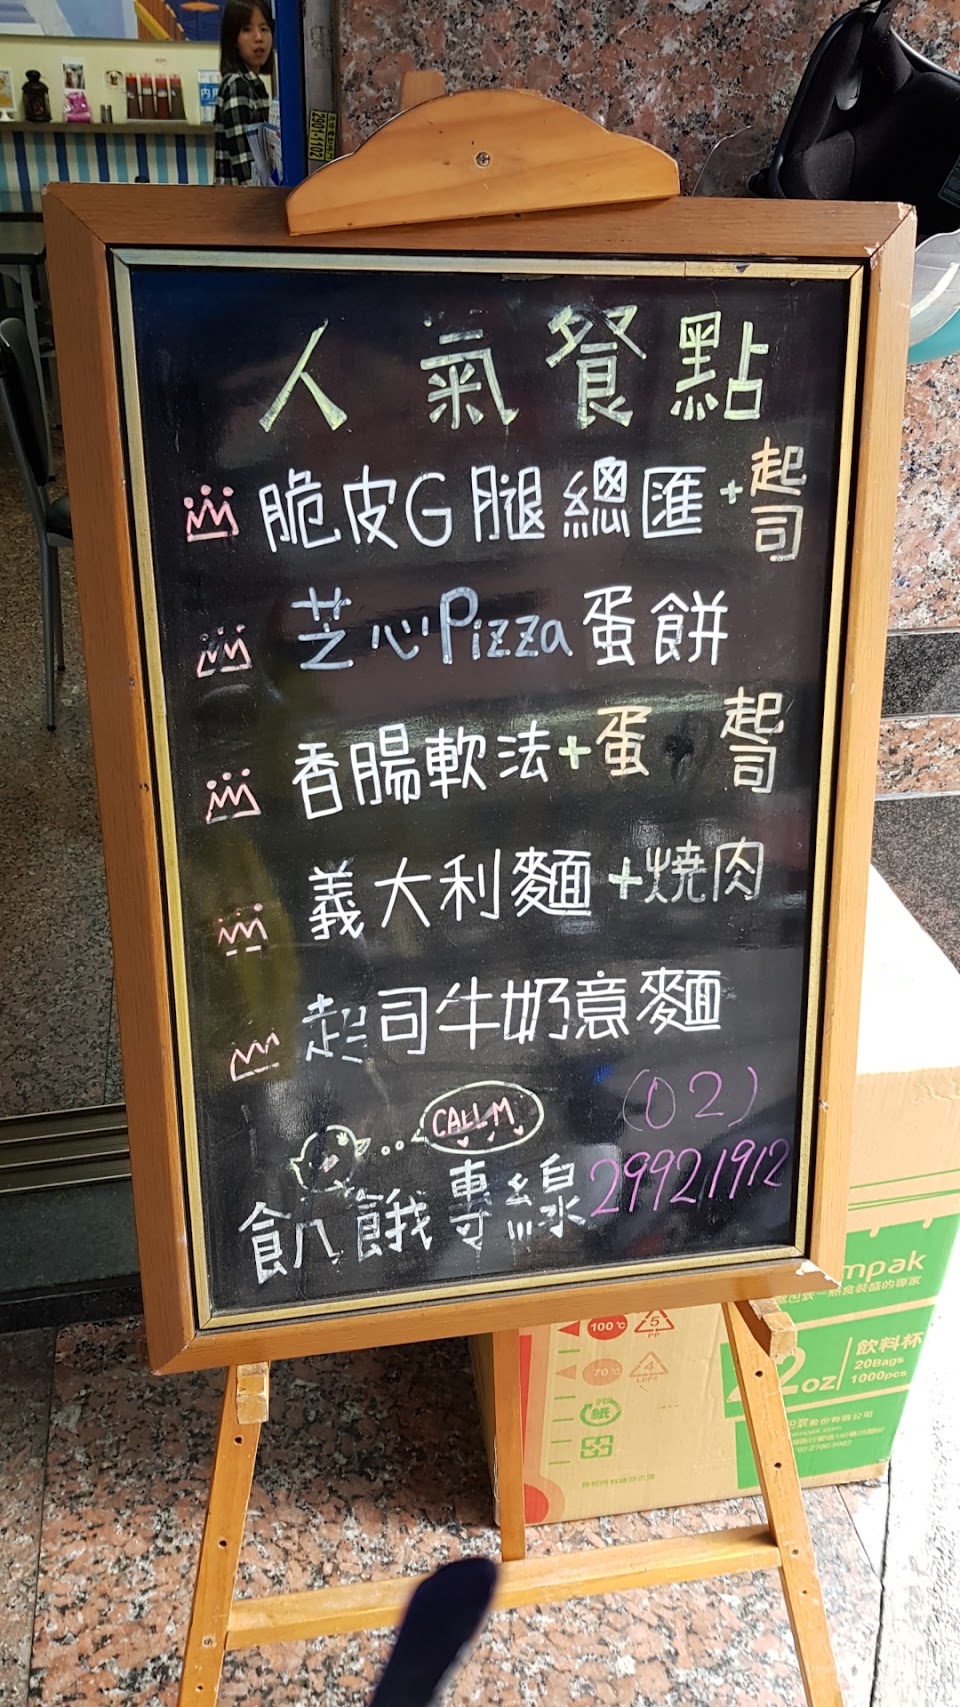 人氣餐點
脆皮G腿總匯+起司
芝心Pizza蛋餅
香腸軟法+蛋 起司
義大利麵+燒肉
起司牛奶意麵
CALL M
(02)
飢餓專線 29921912
2901-1102
mpak
100℃
5
PP
70℃
4
LDPE
紙
2oz
飲料杯
20Bags
1000pcs